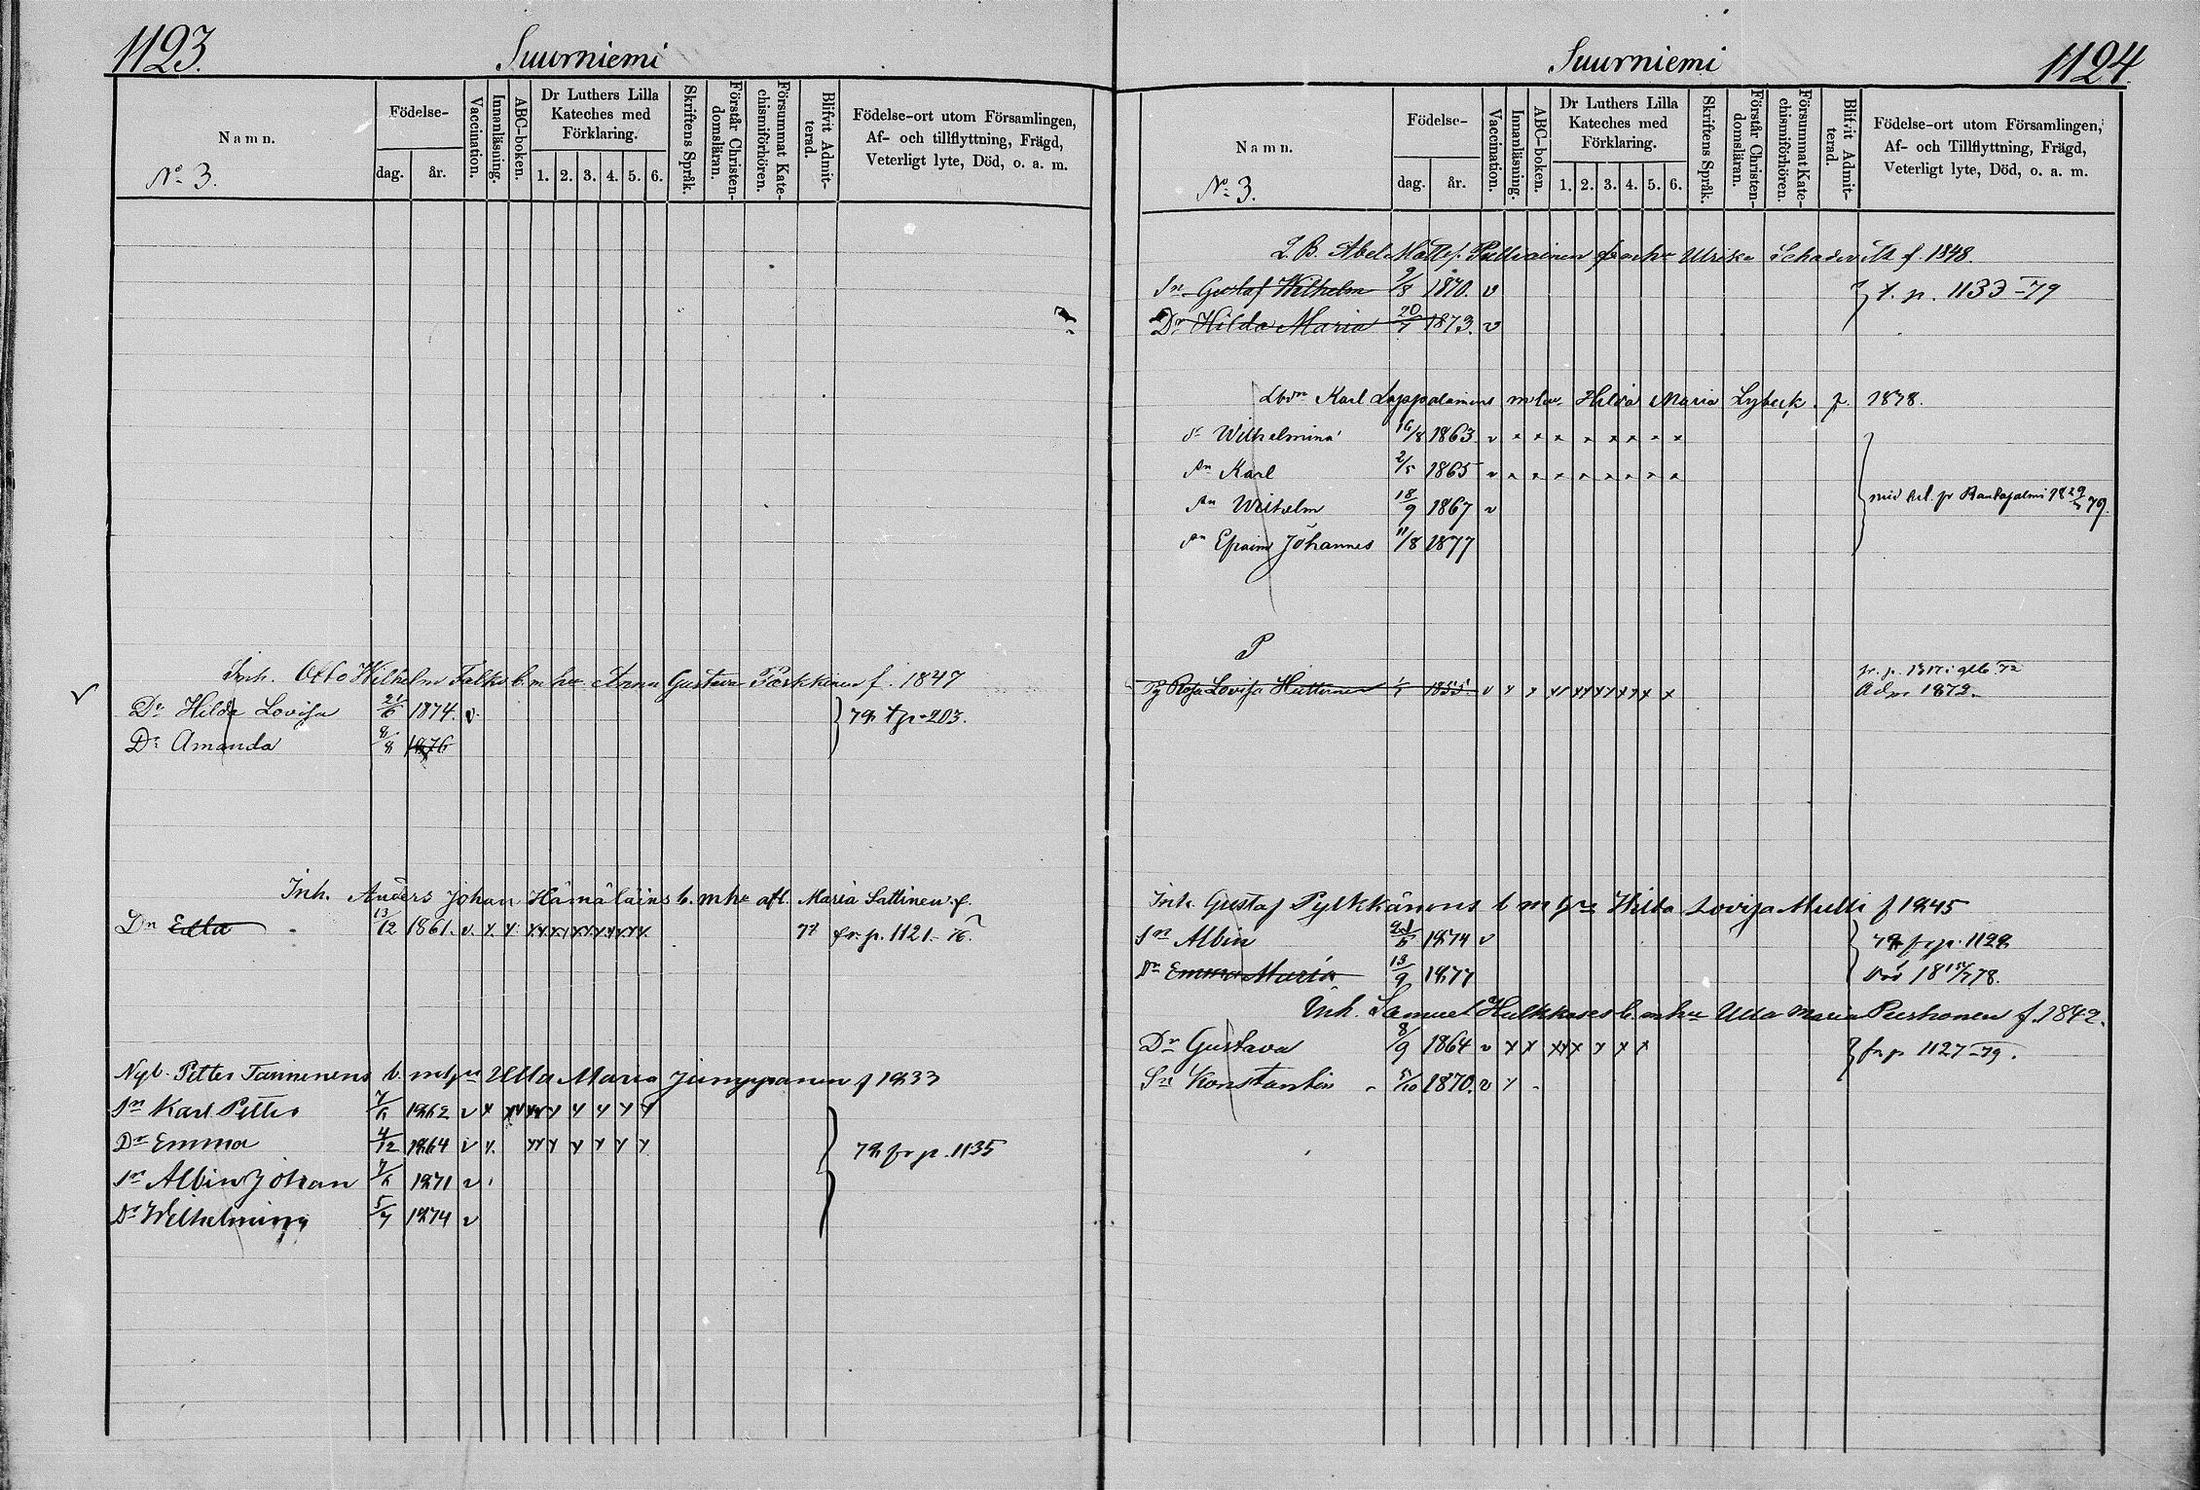 1123.
Suurniemi
Namn.
No 3.
Födelse-
dag. år.
Vaccination.
Innanläsning.
ABC-boken.
Dr Luthers Lilla Kateches med Förklaring.
1. 2. 3. 4. 5. 6.
Skriftens Språk.
Förstår Christen-domsläran.
Försummat Kate-chismiförhören.
Blifvit Admit-terad.
Födelse-ort utom Församlingen,
Af- och tillflyttning, Frägd,
Veterligt lyte, Död, o. a. m.
Inh. Otto Wilhelm Falks b m hu Anna Gustava Parkkinen f. 1847
Dr Hilda Lovisa 21/6 1874. v.
Dr Amanda 8/8 1876
79 t p 203.
Inh. Anders Johan Hämäläins b. m hu afl. Maria Lattinen f.
Dr Edla 13/12 1861. v. x x x x x x x x x 77 fr. p. 1121
Nyb. Petter Tanninens b. m hu Ulla Maria Jumppanen f 1833
Sn Karl Petter 7/6 1862 v x x x x x x x x x
Dr Emma 4/12 1864 v x. x x x x x x x
79 fr p. 1135
Sn Albin Johan 7/6 1871 v
Dr Wilhelmina 5/7 1874 v
1124.
Suurniemi
Namn.
No 3.
Födelse-
dag. år.
Vaccination.
Innanläsning.
ABC-boken.
Dr Luthers Lilla Kateches med Förklaring.
1. 2. 3. 4. 5. 6.
Skriftens Språk.
Förstår Christen-domsläran.
Försummat Kate-chismiförhören.
Blifvit Admit-terad.
Födelse-ort utom Församlingen,
Af- och Tillflyttning, Frägd,
Veterligt lyte, Död, o. a. m.
L. B. Abel Matts. Pulliainen hu Ulrika f. 1848.
Sn Gustaf Wilhelm 9/8 1870. v
t. p. 1133 -79
Dr Hilda Maria 20/7 1873. v
Karl Lappalainens m hu. Hilda Maria Lybeck. f. 1838.
Wilhelmina 16/8 1863 v x x x x x x x x
Sn Karl 2/5 1865 v x x x x x x x x
Sn Wilhelm 18/9 1867 v
Sn Efraim Johannes 11/8 1877
P
Pg Rosa Lovisa Huttunen 1855 v x x x x x x x x x
Adm 1872.
Inh. Gustaf Pylkkänens b m hu Hilda Lovisa Multi f 1845
Sn Albin 1874 v
79 fr p. 1128
Dr Emma Maria 13/9 1877
Död 78.
Inh. Samuel Hulkkoses b. m hu Ulla Maria f. 1842.
Dr Gustava 8/9 1864 v x x x x x x x x
fr p 1127 -79.
Sn Konstantin 5/10 1870. v x